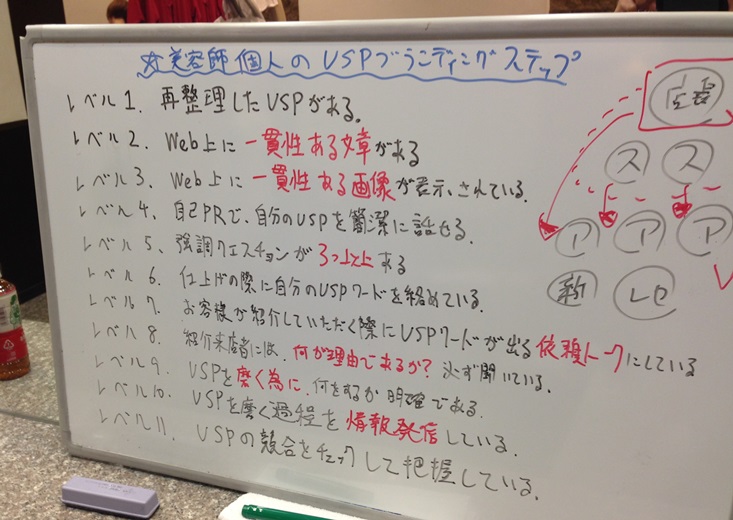 ☆美容師個人のUSPブランディングステップ
レベル1. 再整理したUSPがある。
レベル2. Web上に一貫性ある文章がある
レベル3. Web上に一貫性ある画像が表示されている。
レベル4. 自己PRで、自分のUSPを簡潔に話せる.
レベル5. 強調クエスチョンが3つ以上ある
レベル6. 仕上げの際に自分のUSPワードを絡めている.
レベル7. お客様が紹介していただく際にUSPワードが出る依頼トークにしている
レベル8. 紹介来店者には、何が理由であるか?必ず聞いている.
レベル9. USPを磨く為に.何をするか明確である.
レベル10. USPを磨く過程を情報発信している.
レベル11. USPの競合をチェックして把握している.
店長
ス ス
ア ア ア
新 レセ